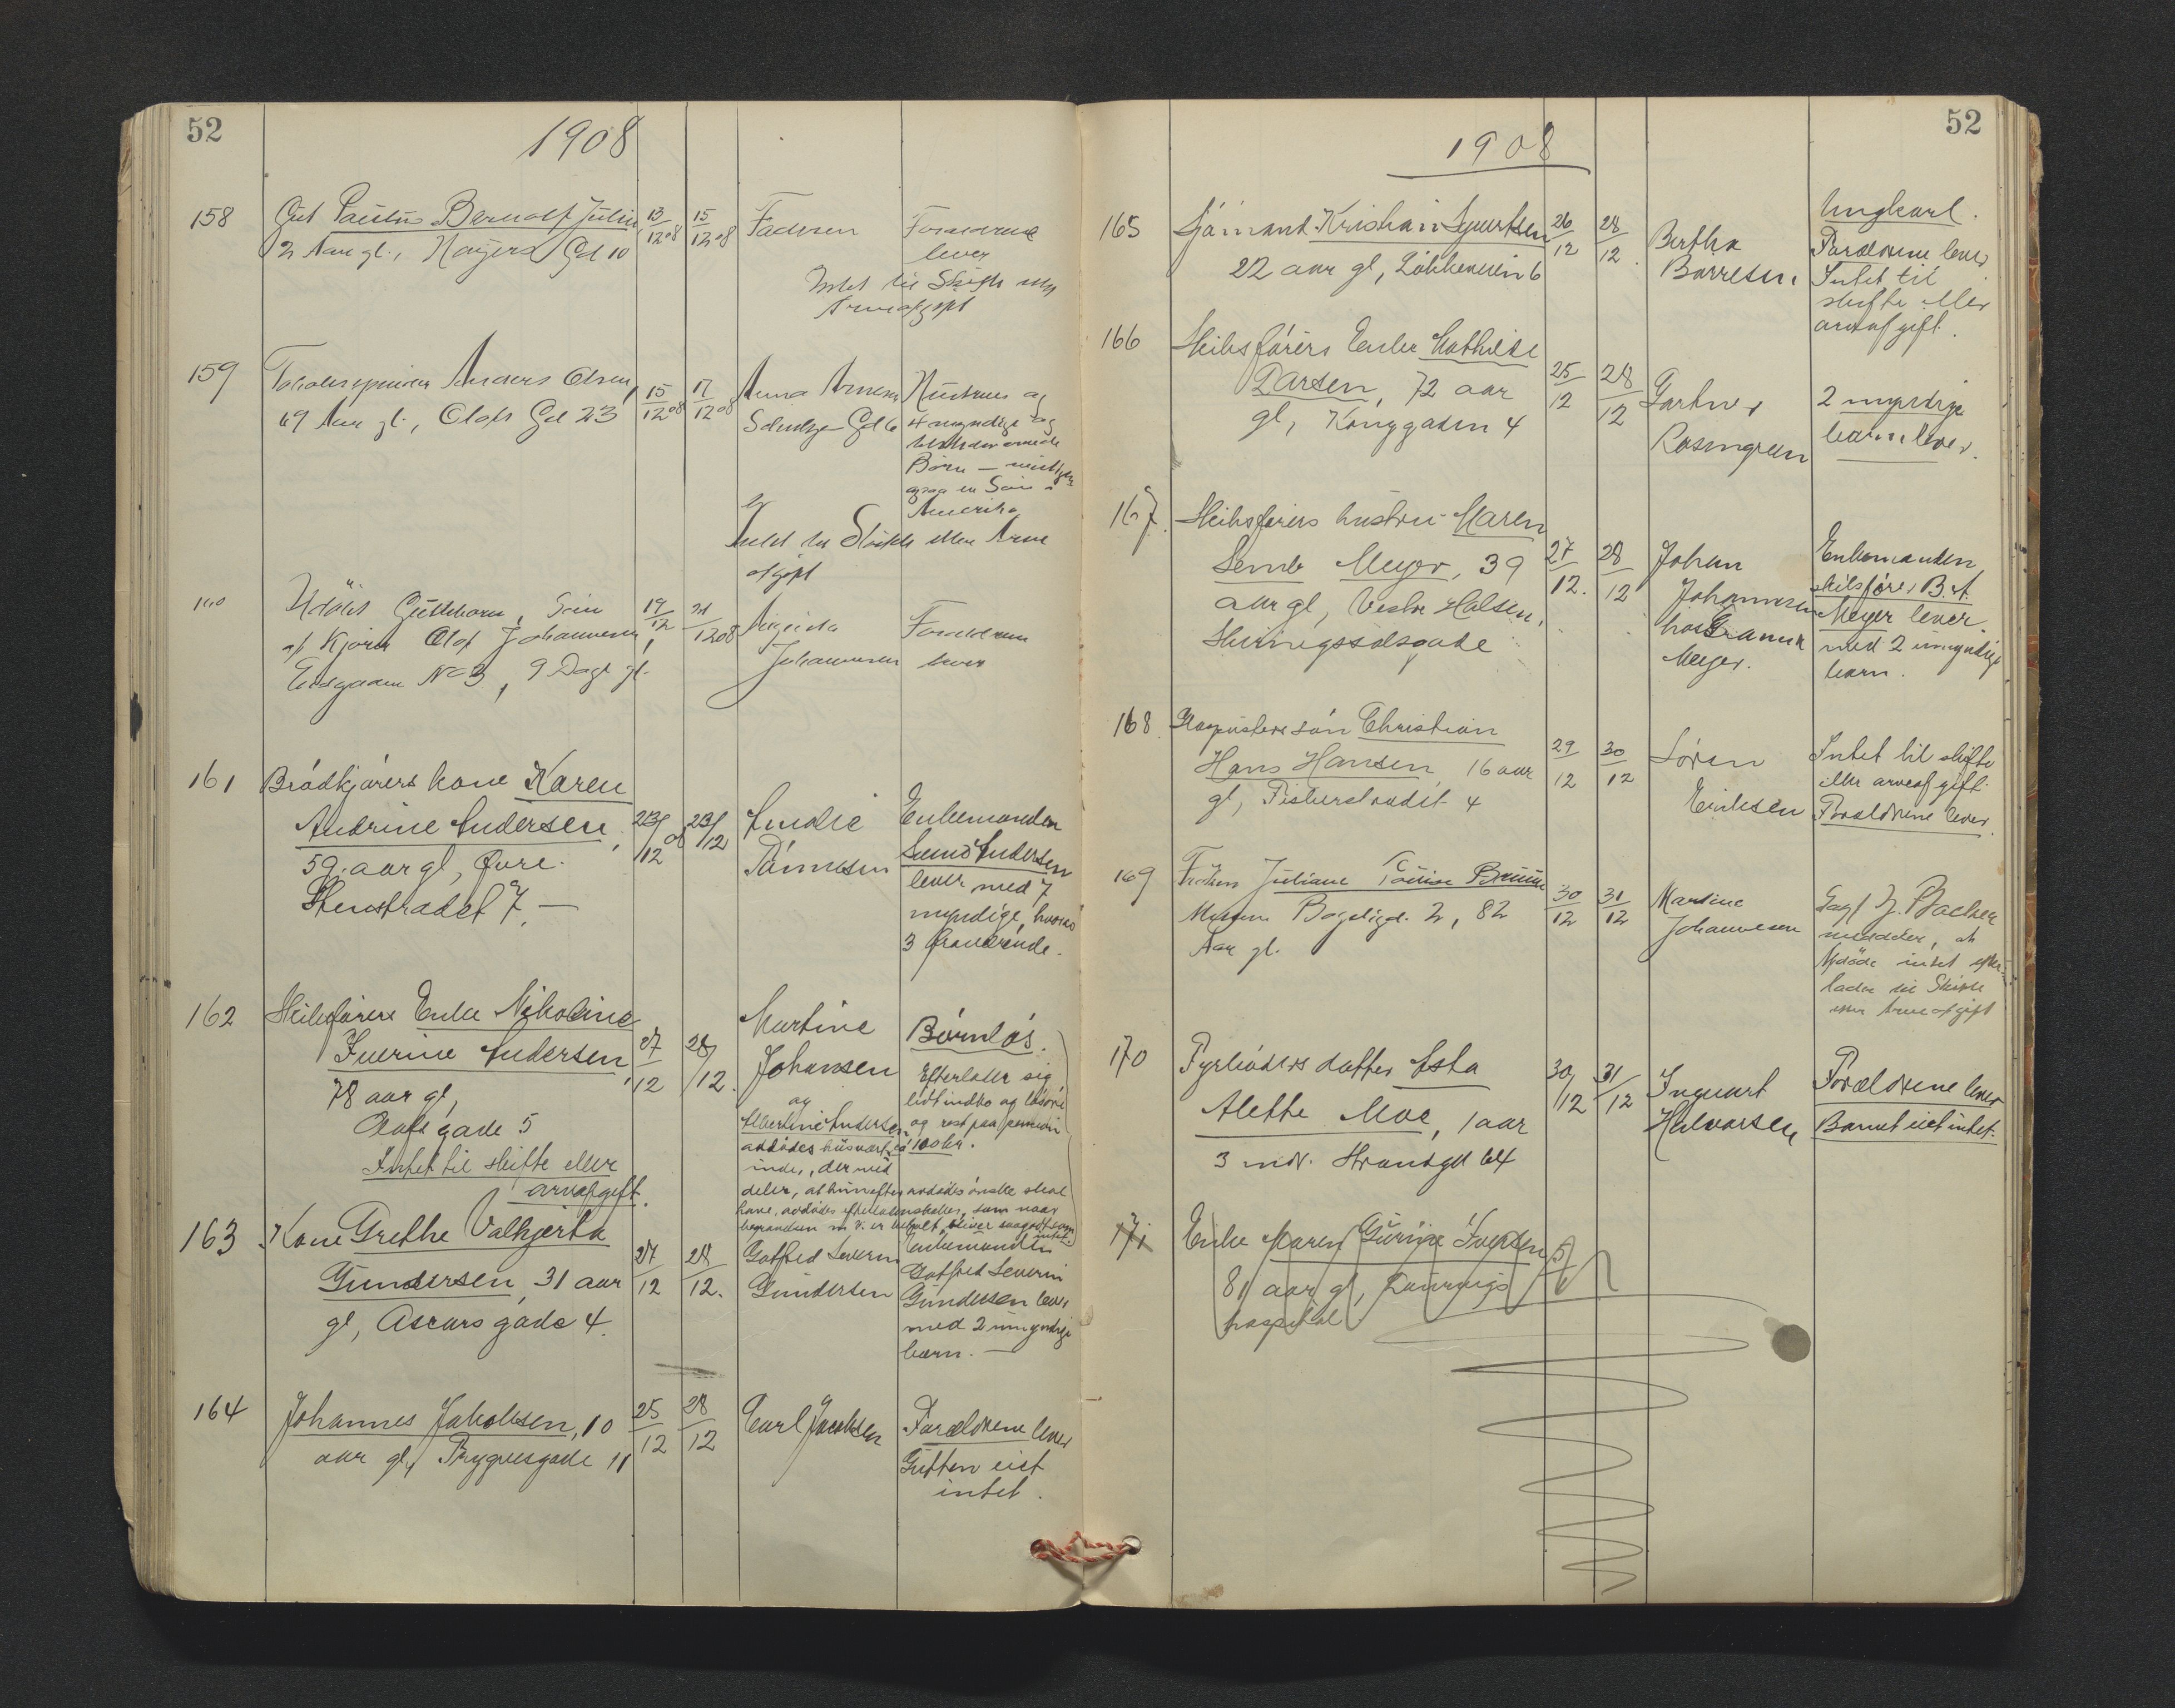 52
1908
158
Gut Paulus Bernolf Julin
2 Aar gl., Hagers Gd 10
13/12 08
15/12 08
Faderen
Forældrene
lever
Intet til Skifte eller
Arveafgift
159
Tobaksspinder Anders Olsen,
69 Aar gl., Olafs Gd 23
15/12 08
17/12 08
Anna Arnesen
Schultzes Gd 6
Hustruen og
4 myndige og
Børn —
ogsaa en Søn i
Amerika
Intet til Skifte eller Arve
afgift
160
Udøbt Guttebarn, Søn
af Kjører Olaf Johannesen,
No 3, 9 Dage gl.
19/12
21/12 08
Augusta
Johannesen
Forældrene
lever
161
Brødkjørers kone Karen
Andrine Andersen,
59 aar gl, Øvre
Stenstrædet 7. —
23/12 08
23/12
Amalie
Tønnesen
Enkemanden
Lund Andersen
lever med 7
myndige, hvorav
3 fraværende.
162
Skibsførers Enke Nikoline
Iverine Andersen,
78 aar gl,
Olafs gade 5
Intet til skifte eller
arveafgift.
27/12
28/12.
Martine
Johansen
og
Albertine Andersen
avdødes husvert
inde, der med
deler, at hun efter avdødes ønske skal
have avdødes efterladenskaber, som naar
begravelsen m.v. er betalt, bliver saagodtsom
intet.
Børnløs.
Efterlater sig
lidt indbo og løsøre
og rest paa pension
100 kr.
163
Kone Grethe Valgjerda
Gundersen, 31 aar
gl, Ascars gade 4.
27/12
28/12.
Gotfred Severin
Gundersen
Enkemanden
Gotfred Severin
Gundersen lever
med 2 umyndige
barn. —
164
Johannes Jakobsen, 10
aar gl, Trygvesgade 11
25/12
28/12
Carl Jacobsen
Forældrene lever
Gutten eiet
intet.
52
1908
165
Sjømand Kristian Syvertsen
22 aar gl, Løkkeveien 6
26/12
28/12.
Bertha
Børresen
Ungkarl.
Forældrene lever
Intet til
skifte eller
arveafgift.
166
Skibsførers Enke Mathilde
Larsen, 72 aar
gl, Konggaden 4
25/12
28/12
Gartner
Rosengren
2 myndige
barn lever.
167.
Skibsførers hustru Maren
Semb Meyer, 39
aar gl, Vestre Holsen,
27/12.
28/12
Johan
Johannesen
hos
Meyer.
Enkemanden,
skibsfører B. A.
Meyer lever
med 2 umyndige
barn.
168.
søn Christian
Hans Hansen, 16 aar
gl, Fiskerstrædet 4
29/12
30/12
Søren
Eriksen
Intet til skifte
eller arveafgift.
Forældrene lever.
169
Frøken Juliane Louise Bruun
2, 82
Aar gl.
30/12
31/12
Martine
Johannesen
meddeler, at
Afdøde intet efter-
lader til Skifte
eller Arveafgift
170
Fyrbøders datter Asta
Alette Moe, 1 aar
3 mdr. Strandgd 64
30/12
31/12
Ingvart
Halvorsen
Forældrene lever
Barnet eiet intet.
171
Enke Maren Gurine Iversen
81 aar gl,
hospital